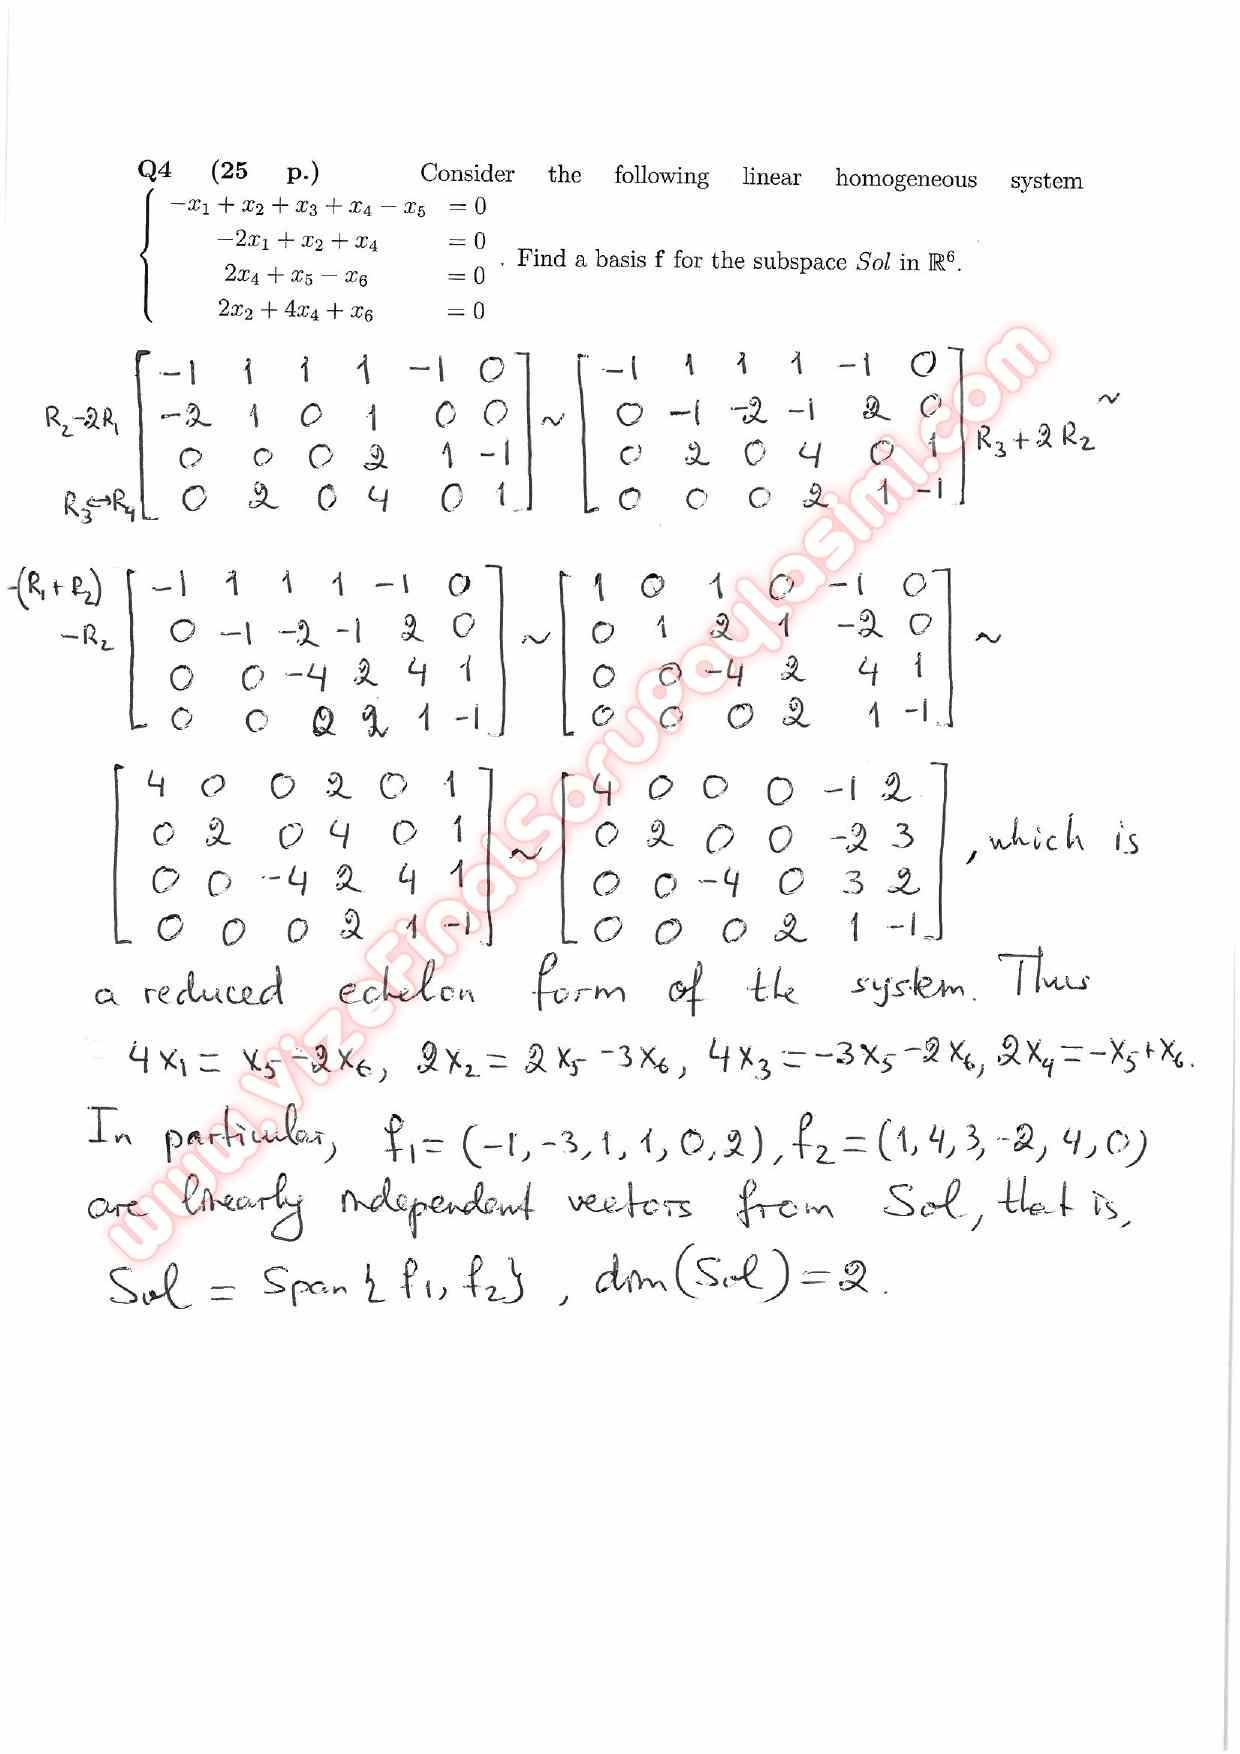 Q4 (25 p.) Consider the following linear homogeneous system
−x₁ + x₂ + x₃ + x₄ − x₅ = 0
−2x₁ + x₂ + x₄ = 0
2x₄ + x₅ − x₆ = 0
2x₂ + 4x₄ + x₆ = 0
. Find a basis f for the subspace Sol in ℝ⁶.
-1 1 1 1 -1 0
R₂-2R₁ -2 1 0 1 0 0
0 0 0 2 1 -1
R₃↔R₄ 0 2 0 4 0 1
~
-1 1 1 1 -1 0
0 -1 -2 -1 2 0
0 2 0 4 0 1 R₃+2R₂
0 0 0 2 1 -1
~
-(R₁+R₂) -1 1 1 1 -1 0
-R₂ 0 -1 -2 -1 2 0
0 0 -4 2 4 1
0 0 0 2 1 -1
~
1 0 1 0 -1 0
0 1 2 1 -2 0
0 0 -4 2 4 1
0 0 0 2 1 -1
~
4 0 0 2 0 1
0 2 0 4 0 1
0 0 -4 2 4 1
0 0 0 2 1 -1
~
4 0 0 0 -1 2
0 2 0 0 -2 3
0 0 -4 0 3 2
0 0 0 2 1 -1
, which is
a reduced echelon form of the system. Thus
4x₁ = x₅-2x₆, 2x₂ = 2x₅-3x₆, 4x₃ = -3x₅-2x₆, 2x₄ = -x₅+x₆.
In particular, f₁ = (-1, -3, 1, 1, 0, 2), f₂ = (1, 4, 3, -2, 4, 0)
are linearly independent vectors from Sol, that is,
Sol = Span{f₁, f₂}, dim(Sol) = 2.
www.VizeFinalSoruPaylasimi.com